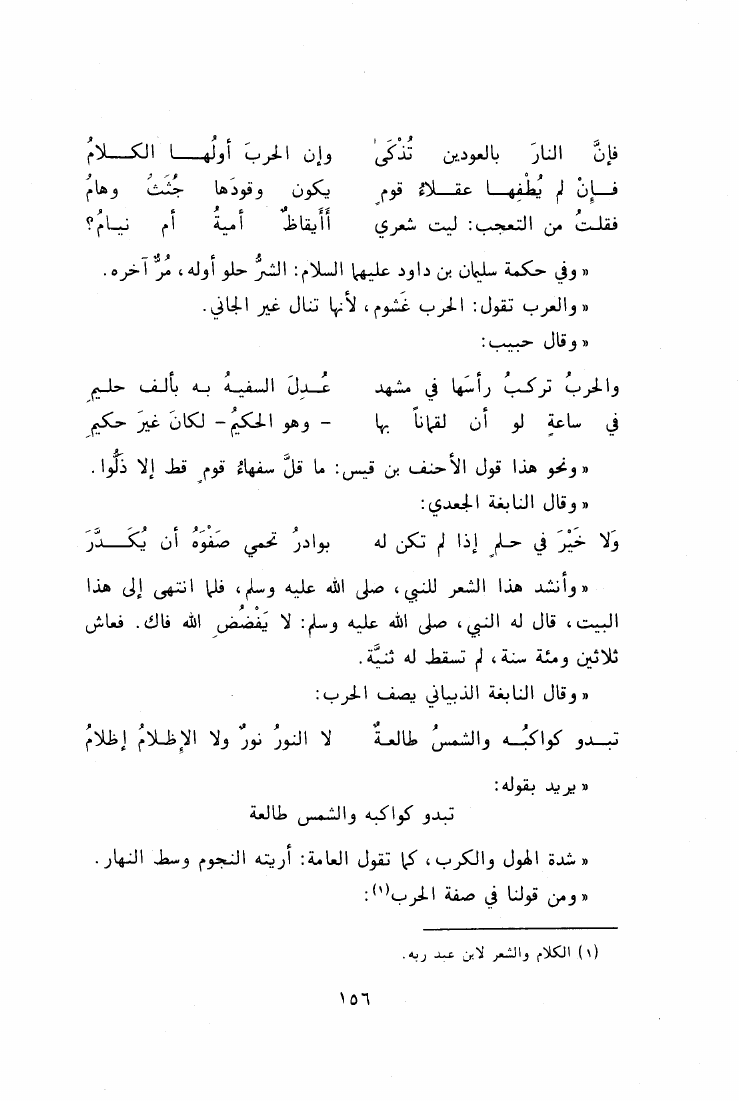 فإنَّ النارَ بالعودين تُذْكَى وإن الحربَ أولُهـا الكـلامُ
فـإنْ لم يُطْفِهـا عقـلاءُ قومٍ يكون وقودَها جُثَثٌ وهامُ
فقلتُ من التعجب: ليت شعري أأيقاظٌ أميةُ أم نيـامُ؟
«وفي حكمة سليمان بن داود عليهما السلام: الشرُّ حلو أوله، مُرٌّ آخره.
«والعرب تقول: الحرب غَشوم، لأنها تنال غير الجاني.
«وقال حبيب:
والحربُ تركبُ رأسَها في مشهد عُـدِلَ السفيهُ بـه بألف حليمٍ
في ساعةٍ لو أن لقماناً بها - وهو الحكيمُ - لكانَ غيرَ حكيمٍ
«ونحو هذا قول الأحنف بن قيس: ما قلَّ سفهاءُ قومٍ قط إلا ذلُّوا.
«وقال النابغة الجعدي:
وَلا خَيْرَ في حلمٍ إذا لم تكن له بوادرُ تحمي صفْوَهُ أن يُكَـدَّرَ
«وأنشد هذا الشعر للنبي، صلى الله عليه وسلم، فلما انتهى إلى هذا
البيت، قال له النبي، صلى الله عليه وسلم: لا يَفْضُضِ الله فاك. فعاش
ثلاثين ومئة سنة، لم تسقط له ثنيَّة.
«وقال النابغة الذبياني يصف الحرب:
تبـدو كواكبُـه والشمسُ طالعـةٌ لا النورُ نورٌ ولا الإظـلامُ إظلامُ
«يريد بقوله:
تبدو كواكبه والشمس طالعة
«شدة الهول والكرب، كما تقول العامة: أريته النجوم وسط النهار.
«ومن قولنا في صفة الحرب(١):
(١) الكلام والشعر لابن عبد ربه.
١٥٦